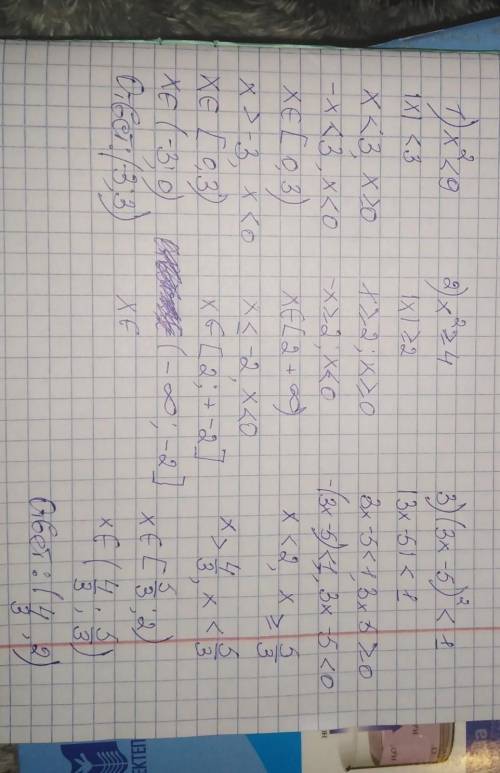 1) x² < 9
|x| < 3
x < 3, x ≥ 0
-x < 3, x < 0
x ∈ [0, 3)
x > -3, x < 0
x ∈ [0, 3)
x ∈ (-3, 0)
Ответ: (-3, 3)
2) x² ≥ 4
|x| ≥ 2
x ≥ 2; x ≥ 0
-x ≥ 2; x < 0
x ∈ [2 + ∞)
x ≤ -2, x < 0
x ∈ [2; + -2]
(-∞; -2]
x ∈
3) (3x - 5)² < 1
|3x - 5| < 1
3x - 5 < 1, 3x - 5 ≥ 0
-(3x - 5) < 1, 3x - 5 < 0
x < 2, x ≥ 5/3
x > 4/3, x < 5/3
x ∈ [5/3, 2)
x ∈ (4/3, 5/3)
Ответ: (4/3, 2)
ЕКТЕП